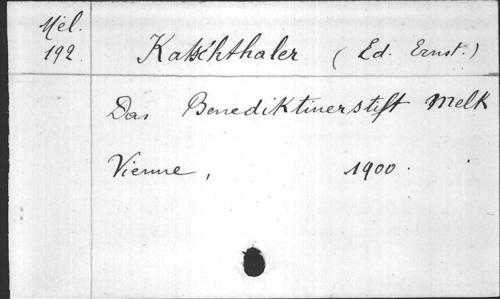 Mél.
192.
Katschthaler (Ed. Ernst.)
Das Benediktinerstift Melk
Vienne, 1900.